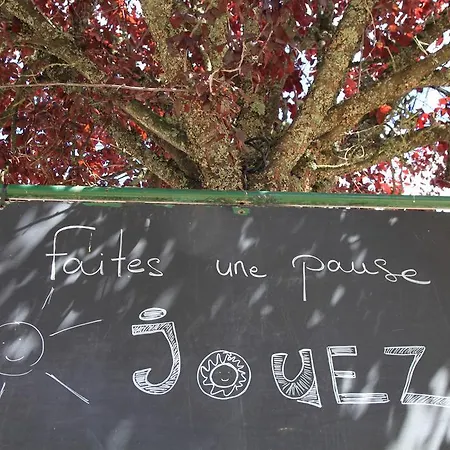 Faites une pause
Jouez